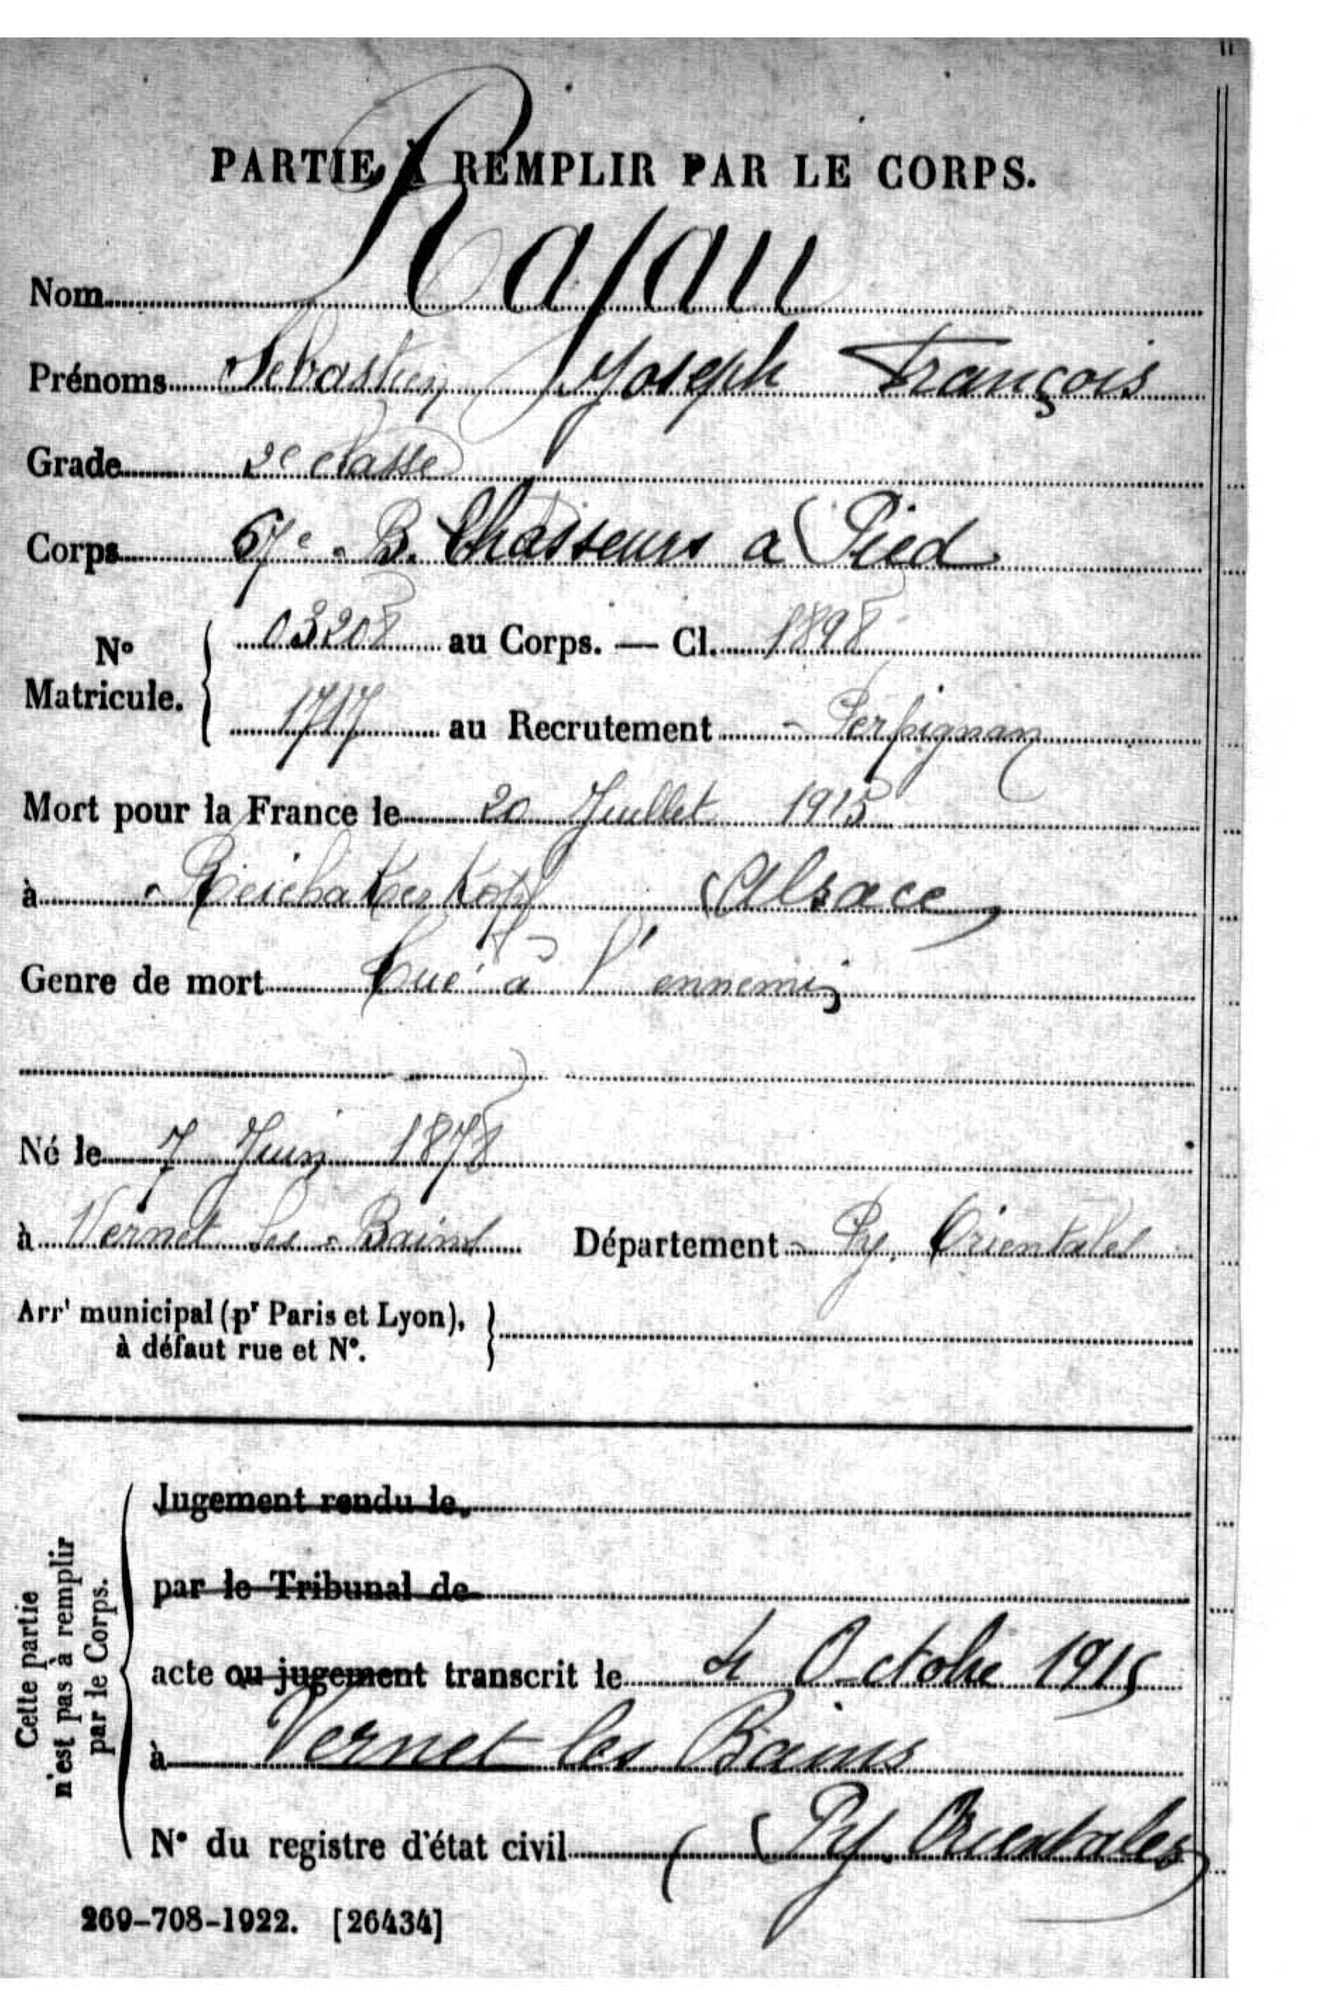 PARTIE À REMPLIR PAR LE CORPS.
Nom Rajau
Prénoms Sébastien Joseph François
Grade 2e classe
Corps 67e B. Chasseurs a Pied
N° Matricule. 03208 au Corps. — Cl. 1898
1717 au Recrutement - Perpignan
Mort pour la France le 20 Juillet 1915
à Reichakerkopf Alsace
Genre de mort tué à l'ennemi
Né le 7 Juin 1878
à Vernet les-Bains Département - Py. Orientales
Arrt municipal (pr Paris et Lyon),
à défaut rue et N°.
Cette partie n'est pas à remplir par le Corps.
Jugement rendu le
par le Tribunal de
acte ou jugement transcrit le 4 Octobre 1915
à Vernet les Bains
N° du registre d'état civil (Py. Orientales)
269-708-1922. [26434]